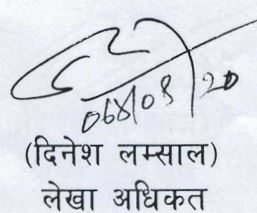 068/08/20
(दिनेश लम्साल)
लेखा अधिकत